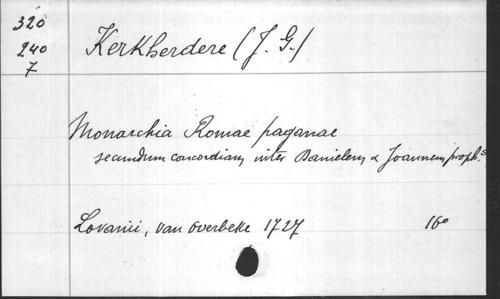 320
240
7
Kerkherdere (J. G.)
Monarchia Romae paganae
secundum concordiam inter Danielem & Joannem proph.s
Lovanii, van Overbeke 1727 16º